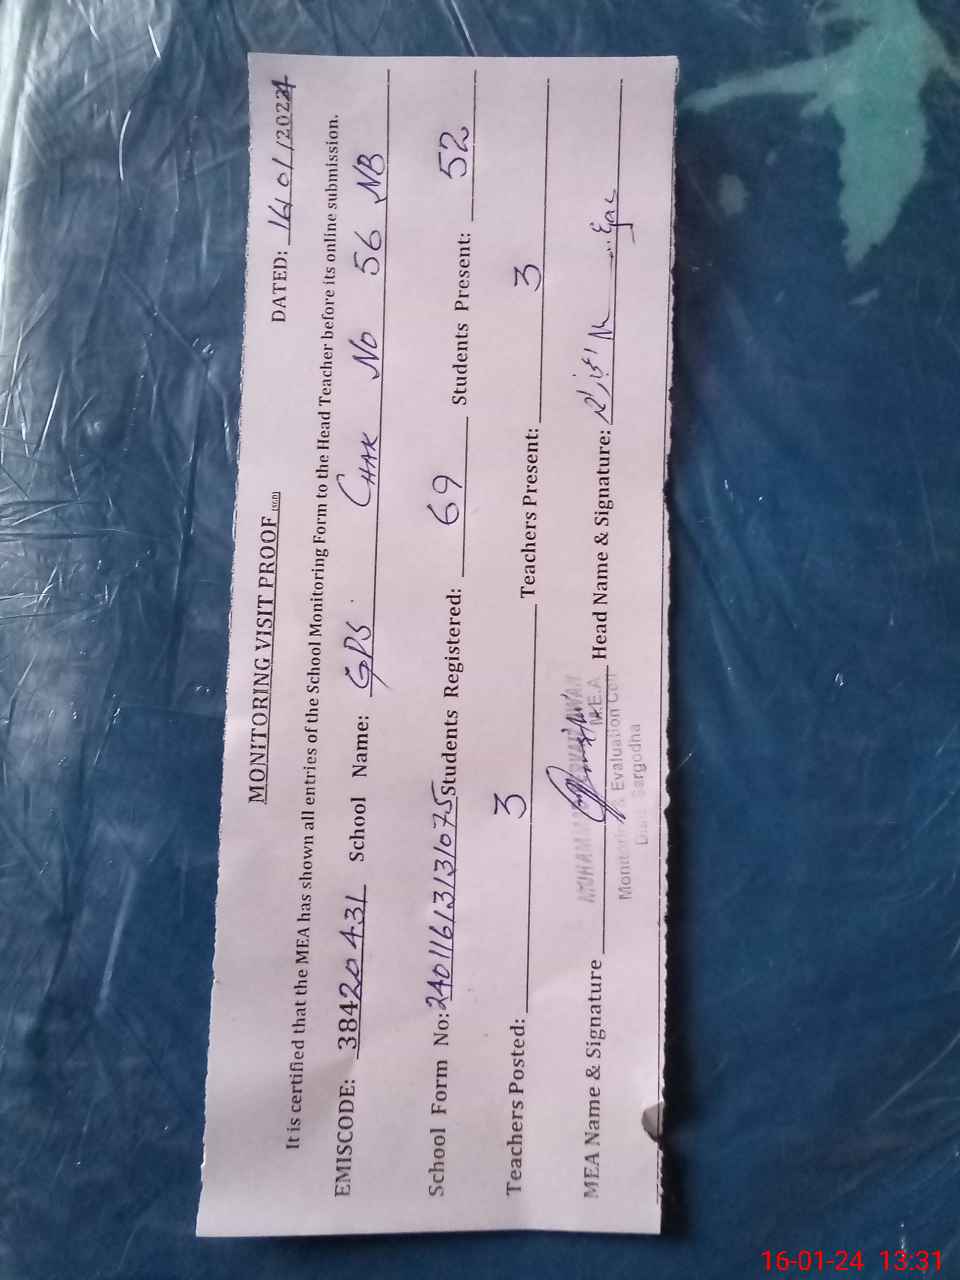 MONITORING VISIT PROOF
DATED: 16/01/2024
It is certified that the MEA has shown all entries of the School Monitoring Form to the Head Teacher before its online submission.
EMISCODE: 38420431 School Name: GPS. CHAK No 56 NB
School Form No: Students Registered: 69 Students Present: 52
Teachers Posted: 3 Teachers Present: 3
MEA Name & Signature Head Name & Signature:
M.E.A
Monitoring & Evaluation Cell
Sargodha
16-01-24 13:31